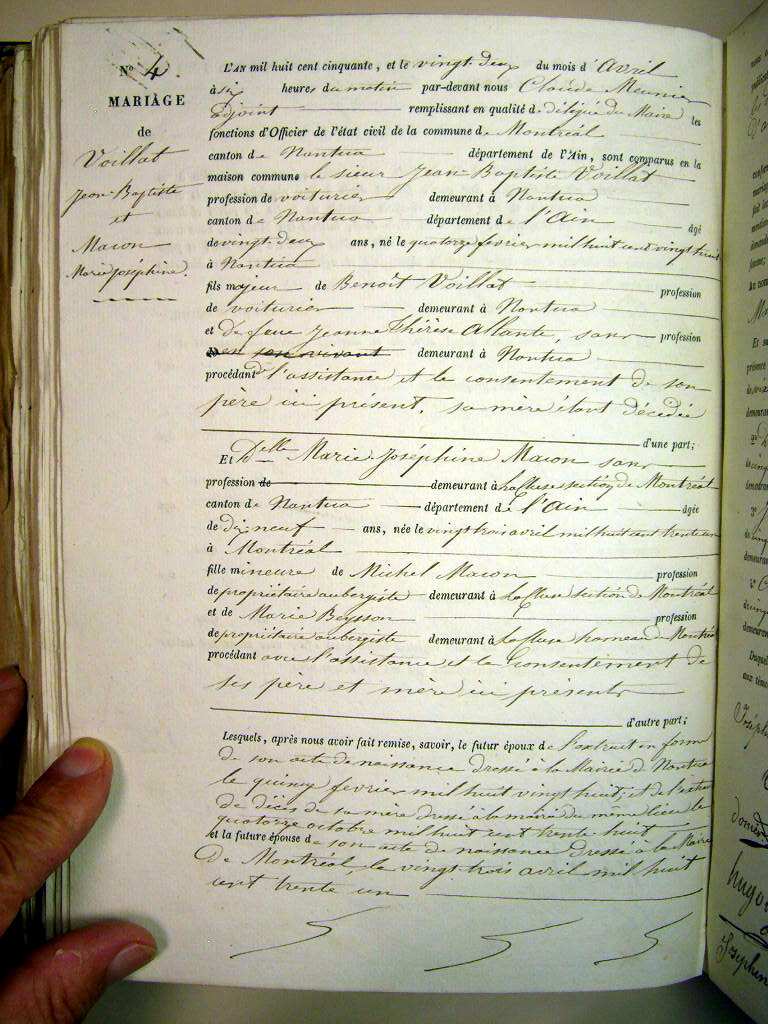 N° 4.
MARIAGE
de
Voillat
Jean-Baptiste
et
Macon
Marie Joséphine.
L'AN mil huit cent cinquante, et le vingt-deux du mois d'Avril
à six heures du matin par-devant nous Claude Meunier
adjoint remplissant en qualité de délégué du Maire les
fonctions d'Officier de l'état civil de la commune de Montréal
canton de Nantua département de l'Ain, sont comparus en la
maison commune le sieur Jean-Baptiste Voillat
profession de voiturier demeurant à Nantua
canton de Nantua département de l'Ain âgé
de vingt-deux ans, né le quatorze février mil huit cent vingt huit
à Nantua
fils majeur de Benoît Voillat profession
de voiturier demeurant à Nantua
et de feue Jeanne Thérèse Allante, sans profession
de en son vivant demeurant à Nantua
procédant de l'assistance et le consentement de son
père ici présent, sa mère étant décédée
d'une part;
Et Dlle Marie Joséphine Macon sans
profession de demeurant à La Cluse section de Montréal
canton de Nantua département de l'Ain âgée
de dix neuf ans, née le vingt trois avril mil huit cent trente un
à Montréal
fille mineure de Michel Macon profession
de propriétaire aubergiste demeurant à La Cluse section de Montréal
et de Marie Beysson profession
de propriétaire aubergiste demeurant à La Cluse hameau de Montréal
procédant avec l'assistance et le Consentement de
ses père et mère ici présents
d'autre part;
Lesquels, après nous avoir fait remise, savoir, le futur époux de l'extrait en forme
de son acte de naissance dressé à la Mairie de Nantua
le quinze février mil huit vingt huit; et de l'extrait
de décès de sa mère dressé à la mairie du même lieu le
quatorze octobre mil huit cent trente huit
et la future épouse de son acte de naissance dressé à la Mairie
De Montréal, le vingt trois avril mil huit
cent trente un